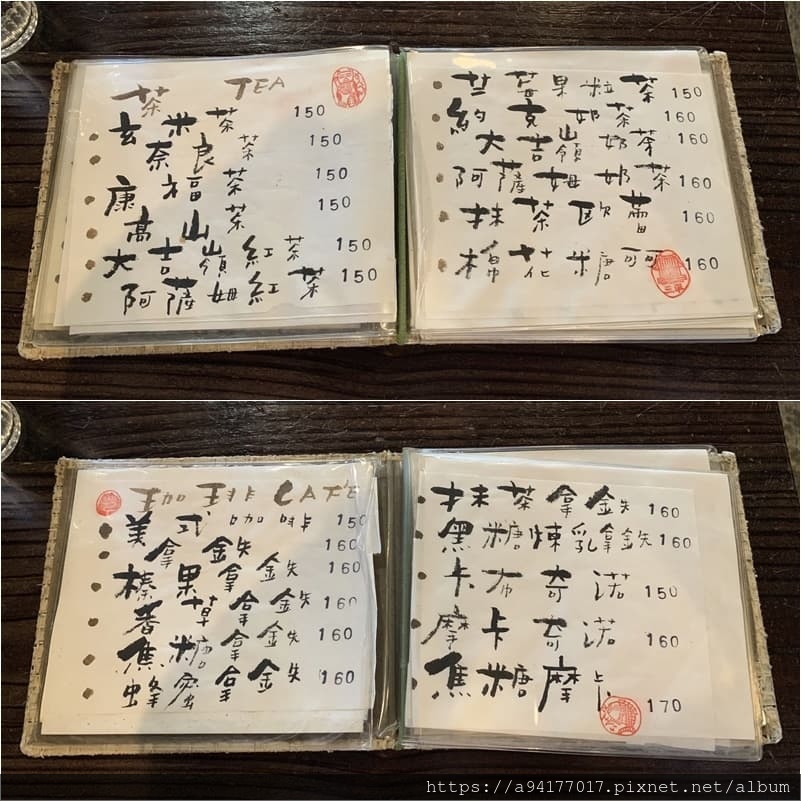 茶 TEA
玄米茶 150
奈良茶 150
康福茶 150
高山茶 150
大吉嶺紅茶 150
阿薩姆紅茶 150
莓果粒茶 150
約克奶茶 160
大吉嶺奶茶 160
阿薩姆奶茶 160
抹茶歐蕾 160
棉花糖可可 160
珈琲 CAFE
美式咖啡 150
拿鐵 160
榛果拿鐵 160
香草拿鐵 160
焦糖拿鐵 160
蜂蜜拿鐵 160
抹茶拿鐵 160
黑糖煉乳拿鐵 160
卡布奇諾 150
摩卡奇諾 160
焦糖摩卡 170
https://a94177017.pixnet.net/album